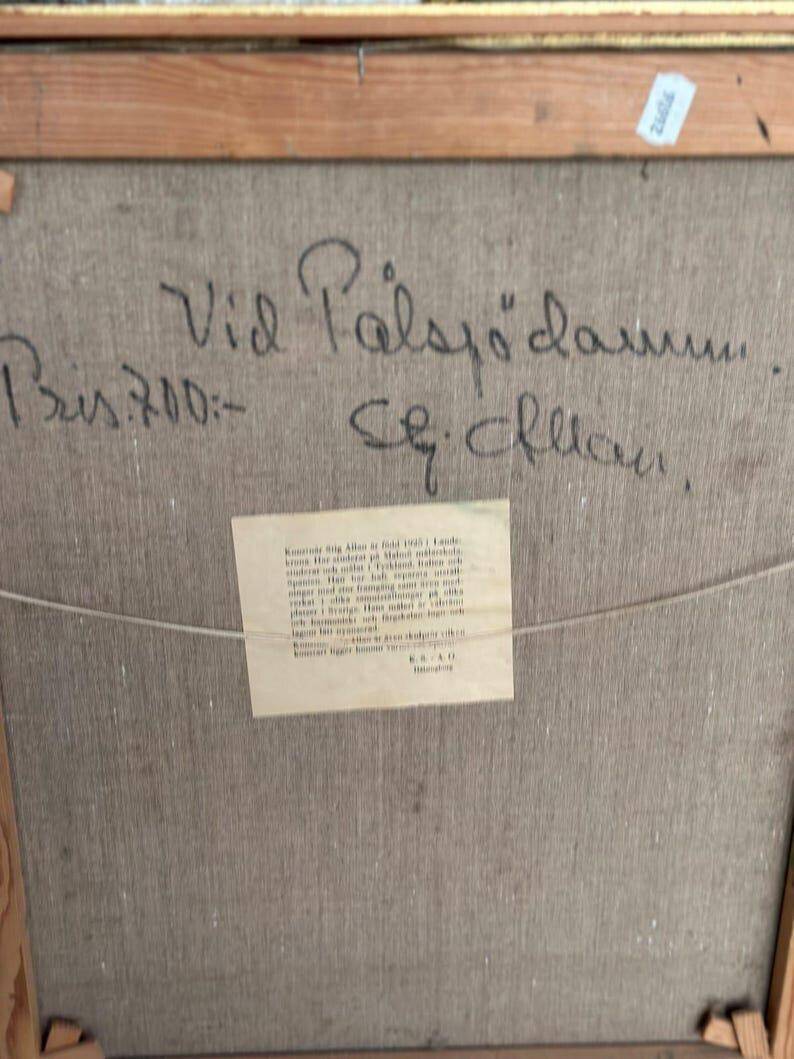 26626
Vid Pålsjödammen.
Pris: 700:-
Stig Allan.
Konstnär Stig Allan är född 1925 i Lands-
krona. Har studerat på Malmö målarskola,
studerat och målat i Tyskland, Italien och
Spanien. Han har haft separata utställ-
ningar med stor framgång samt även med-
verkat i olika samlingsutställningar på olika
platser i Sverige. Hans måleri är
och harmoniskt och färgskalan
Allan är även skulptör vilken
konstart ligger honom
K. S. - A. O
Hälsingborg